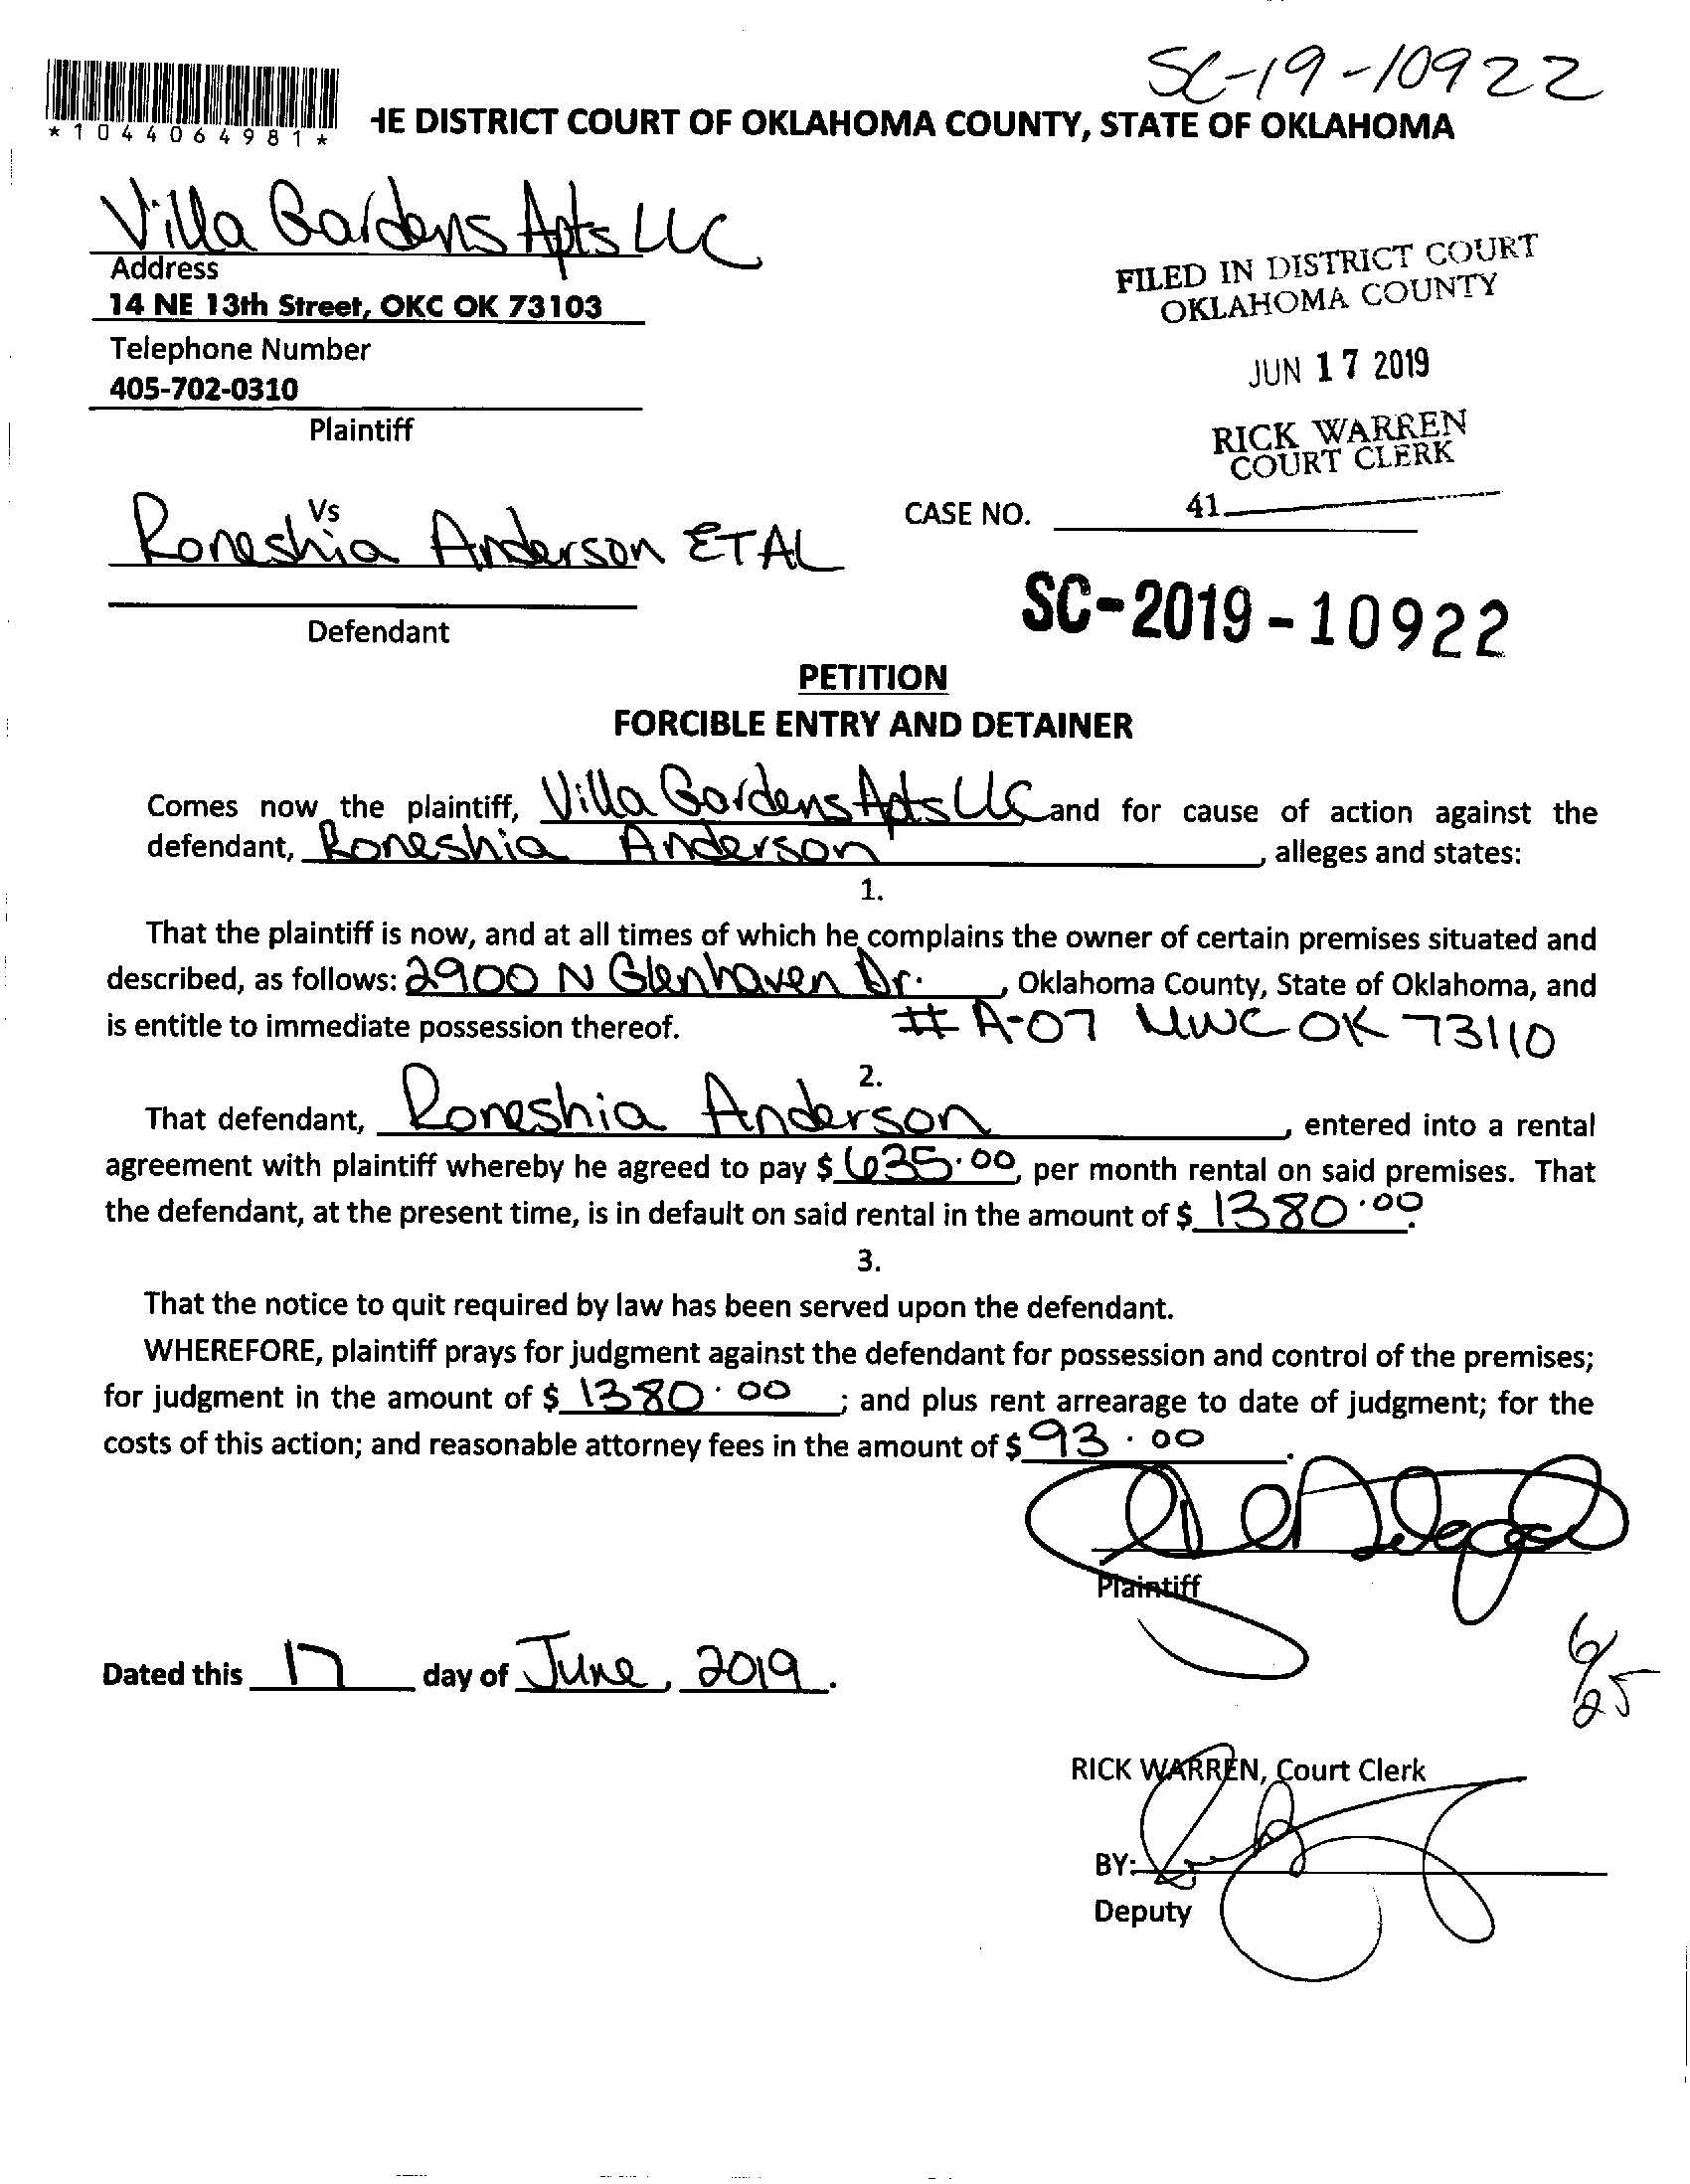 SC-19-10922
*1044064981*
HE DISTRICT COURT OF OKLAHOMA COUNTY, STATE OF OKLAHOMA
Villa Gardens Apts LLC
Address
14 NE 13th Street, OKC OK 73103
Telephone Number
405-702-0310
Plaintiff
FILED IN DISTRICT COURT
OKLAHOMA COUNTY
JUN 17 2019
RICK WARREN
COURT CLERK
41
Vs
Roneshia Anderson ETAL
CASE NO.
Defendant
SC-2019-10922
PETITION
FORCIBLE ENTRY AND DETAINER
Comes now the plaintiff, Villa Gardens Apts LLC and for cause of action against the
defendant, Roneshia Anderson, alleges and states:
1.
That the plaintiff is now, and at all times of which he complains the owner of certain premises situated and
described, as follows: 2900 N Glenhaven Dr. , Oklahoma County, State of Oklahoma, and
is entitle to immediate possession thereof. # A-07 MWC OK 73110
2.
That defendant, Roneshia Anderson, entered into a rental
agreement with plaintiff whereby he agreed to pay $ 635.00, per month rental on said premises. That
the defendant, at the present time, is in default on said rental in the amount of $ 1380.00.
3.
That the notice to quit required by law has been served upon the defendant.
WHEREFORE, plaintiff prays for judgment against the defendant for possession and control of the premises;
for judgment in the amount of $ 1380.00 ; and plus rent arrearage to date of judgment; for the
costs of this action; and reasonable attorney fees in the amount of $ 93.00.
Plaintiff
Dated this 17 day of June, 2019.
6/25
RICK WARREN, Court Clerk
BY:
Deputy